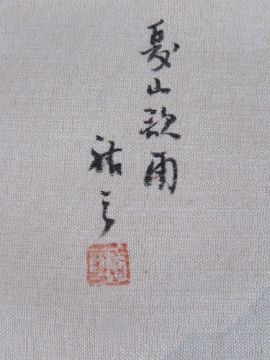 夏山欲雨
祐之